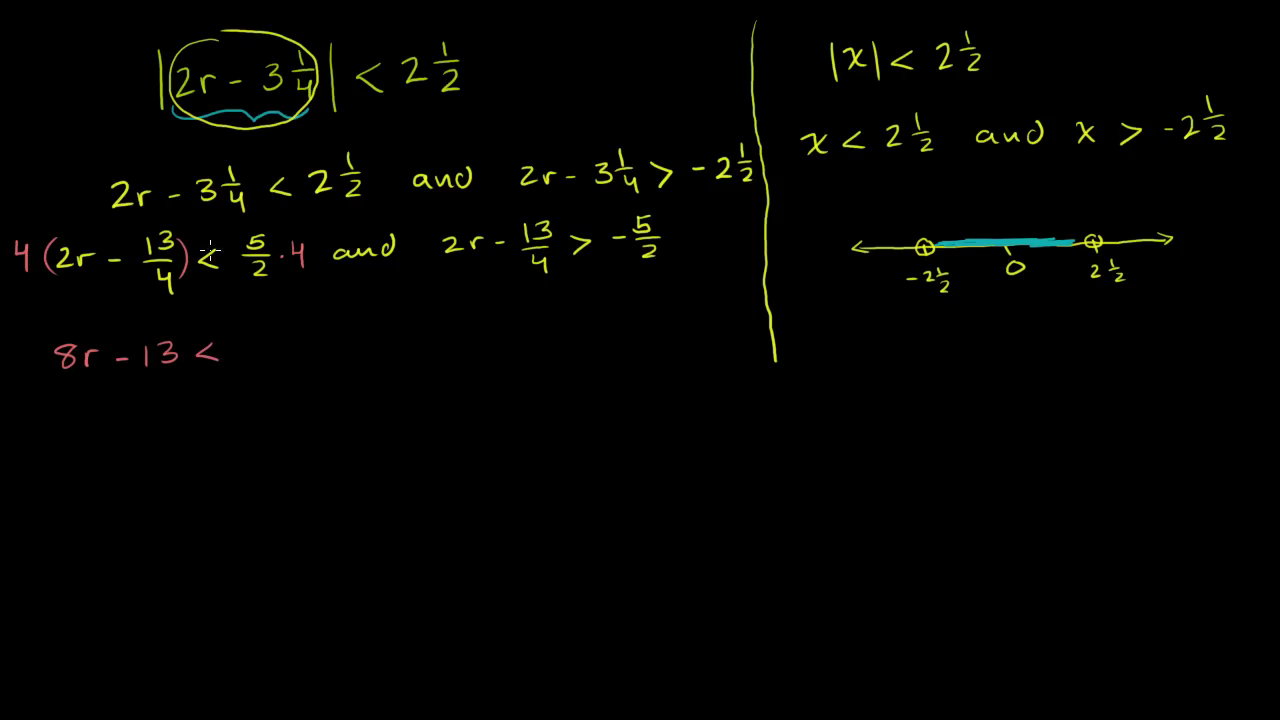 |2r - 3 1/4| < 2 1/2
2r - 3 1/4 < 2 1/2 and 2r - 3 1/4 > -2 1/2
4(2r - 13/4) < 5/2 · 4 and 2r - 13/4 > -5/2
8r - 13 <
|x| < 2 1/2
x < 2 1/2 and x > -2 1/2
-2 1/2 0 2 1/2